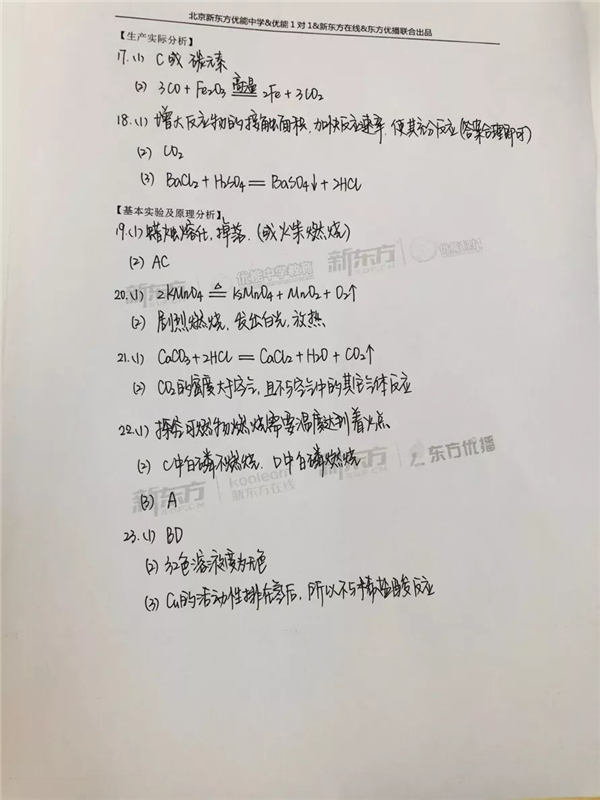 北京新东方优能中学&优能1对1&新东方在线&东方优播联合出品
【生产实际分析】
17.(1) C或碳元素
(2) 3CO + Fe2O3 高温 2Fe + 3CO2
18.(1) 增大反应物的接触面积,加快反应速率,使其充分反应(答案合理即可)
(2) CO2
(3) BaCl2 + H2SO4 = BaSO4↓ + 2HCl
【基本实验及原理分析】
19.(1) 蜡烛熔化,掉落.(或火柴燃烧)
(2) AC
20.(1) 2KMnO4 △ K2MnO4 + MnO2 + O2↑
(2) 剧烈燃烧,发出白光,放热
21.(1) CaCO3 + 2HCl = CaCl2 + H2O + CO2↑
(2) CO2的密度大于空气,且不与空气中的其它气体反应
22.(1) 探究可燃物燃烧需要温度达到着火点
(2) C中白磷不燃烧,D中白磷燃烧
(3) A
23.(1) BD
(2) 红色溶液变为无色
(3) Cu的活动性排在氢后,所以不与稀盐酸反应
新东方
XDF.CN
优能中学教育
新东方
XDF.CN
koolearn
新东方在线
新东方
XDF.CN
东方优播